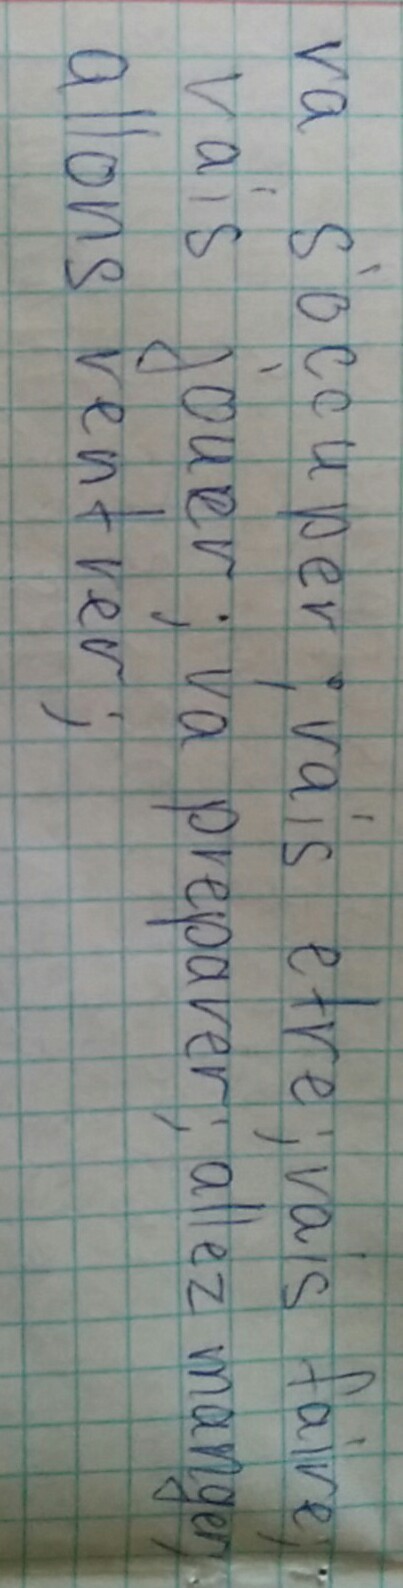 va s'occuper; vais etre; vais faire;
vais jouer; va preparer; allez manger;
allons rentrer;